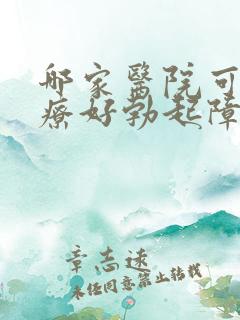 哪家醫院可
療好勃起障
章志速
未经同意禁止转载